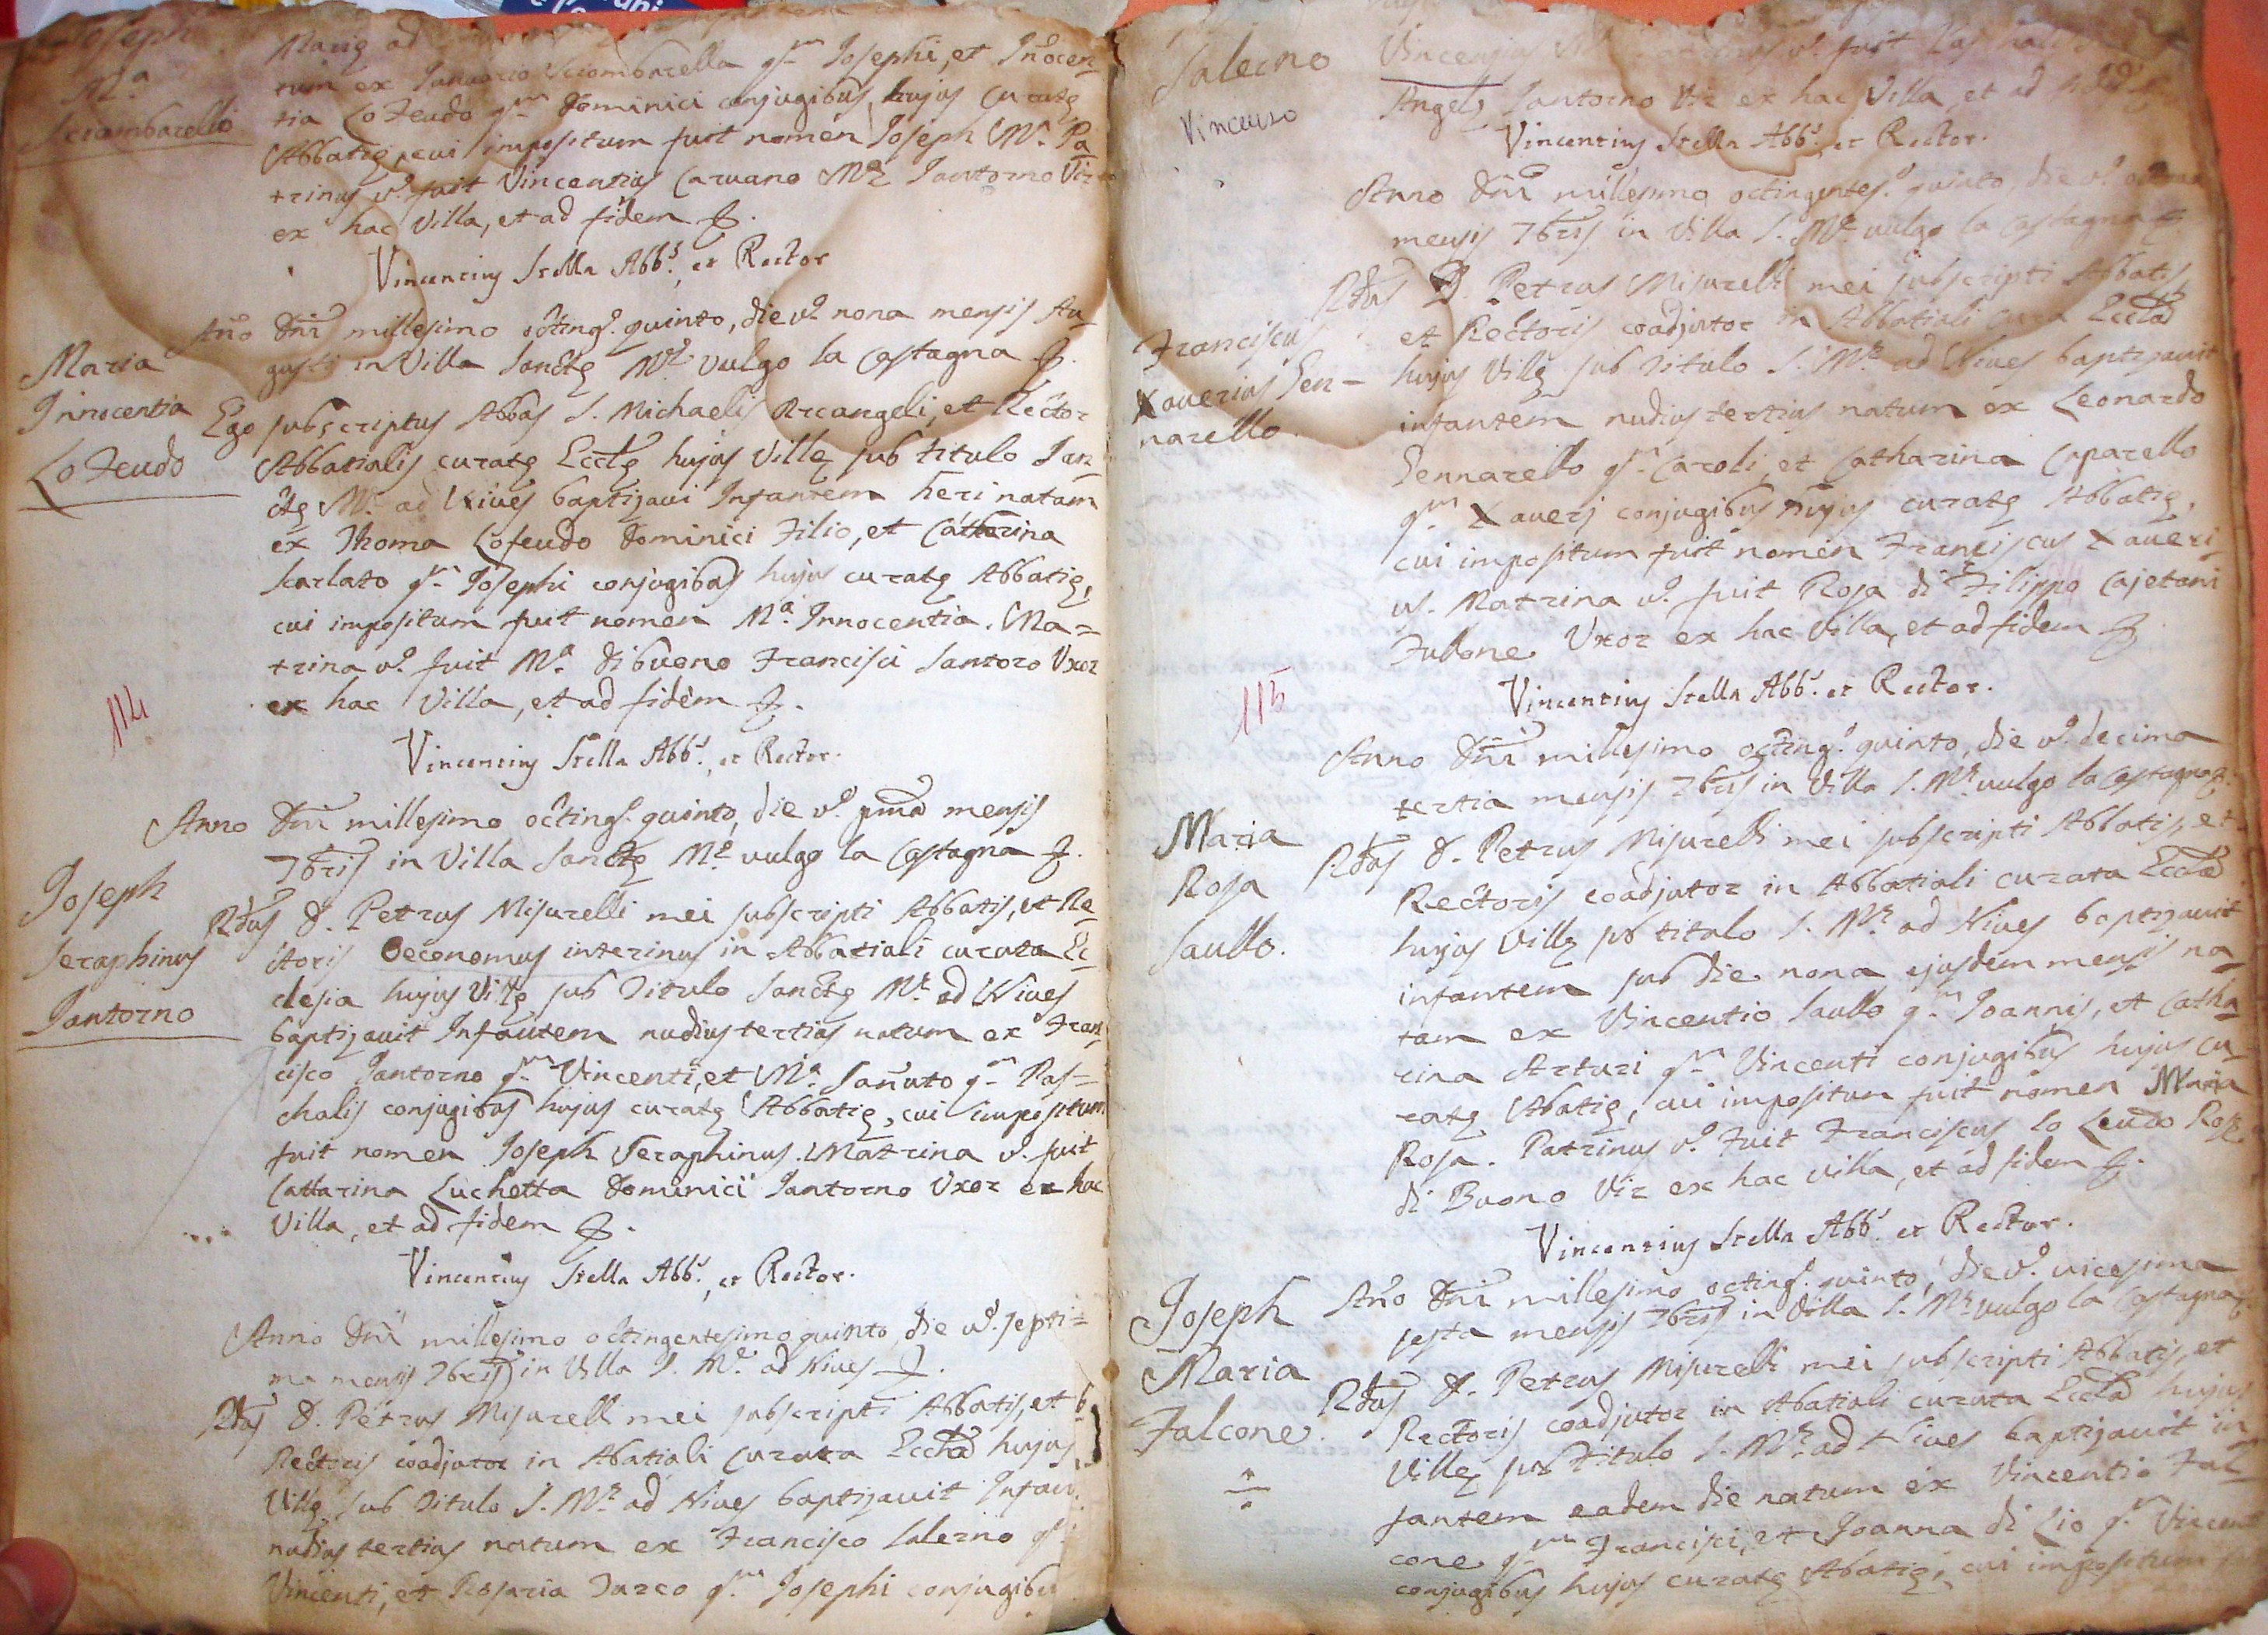 Joseph
M.ª
Sciambarello
Marię ad
tum ex Januario Sciombarella qm Josephi, et Iñocen-
tia Lo Feudo qm Dominici conjugibus hujus curatę
Abbatię, cui impositum fuit nomen Joseph M.ª Pa-
trinus v.º fuit Vincentius Caruano Mę Santorno Vir
ex hac Villa, et ad fidem
Vincentius Stella Abb.s, et Rector
Maria
Innocentia
Lo Feudo
Año Dñi millesimo octing.º quinto, die v.º nona mensis Au-
gusti in Villa Sanctę Mę vulgo la Castagna
Ego subscriptus Abbas S. Michaelis Arcangeli, et Rector
Abbatialis curatę Ecclę hujus Villę sub titulo San-
ctę M.ę ad Nives baptizavi Infantem heri natam
ex Thoma Lofeudo Dominici Filio, et Catharina
Scarlato qm Josephi conjugibus hujus curatę Abbatię,
cui impositum fuit nomen M.ª Innocentia. Ma=
trina v.º fuit M.ª Di bueno Francisci Santoro Uxor
ex hac Villa, et ad fidem
Vincentius Stella Abb.s, et Rector.
114
Joseph
Seraphinus
Santorno
Anno Dñi millesimo octing.º quinto, die v.º pma mensis
7bris in Villa Sanctę M.ę vulgo la Castagna
Rdus D. Petrus Misurelli mei subscripti Abbatis, et Re-
ctoris Oeconomus interinus in Abbatiali curata Ec-
clesia hujus Villę sub Titulo Sanctę M.ę ad Nives
baptizavit Infantem nudius tertius natum ex Fran-
cisco Santorno qm Vincenti, et M.ª Sañuto qm Pas=
chalis conjugibus hujus curatę Abbatię, cui impositum
fuit nomen Joseph Seraphinus. Matrina v.º fuit
Cattarina Luchetta Dominici Santorno Uxor ex hac
Villa, et ad fidem
Vincentius Stella Abb.s, et Rector.
Anno Dñi millesimo octingentesimo quinto, die v.º septi=
ma mensis 7bris in Villa S. M.ę ad Nives
Rdus D. Petrus Misurelli mei subscripti Abbatis, et
Rectoris coadjutor in Abatiali Curata Eccła hujus
Villę sub Titulo S. M.ę ad Nives baptizavit Infan
nudius tertius natum ex Francisco Salerno qm
Vincenti, et Rosaria Turco qm Josephi conjugibus
Salerno
Vincenzo
Vincenzius
Angelę Santorno Vir ex hac Villa, et ad fidem
Vincentius Stella Abb.s, et Rector.
Franciscus
Xaverius Gen-
narello
Anno Dñi millesimo octingentes.º quinto, die v.º
mensis 7bris in Villa S. M.ę vulgo la Castagna
Rdus D. Petrus Misurelli mei subscripti Abbatis
et Rectoris coadjutor in Abbatiali cura Eccła
hujus Villę sub Titulo S. M.ę ad Nives baptizavit
infantem nudius tertius natum ex Leonardo
Gennarello qm Caroli, et Catharina Caparello
qm Xaverj conjugibus hujus curatę Abbatię,
cui impositum fuit nomen Franciscus Xaveri-
us. Matrina v.º fuit Rosa di Filippo Cajetani
Fulone Uxor ex hac Villa, et ad fidem
Vincentius Stella Abb.s et Rector.
115
Maria
Rosa
Saullo.
Anno Dñi millesimo octing.º quinto, die v.º decima
tertia mensis 7bris in Villa S. M.ę vulgo la Castagna
Rdus D. Petrus Misurelli mei subscripti Abbatis, et
Rectoris coadjutor in Abbatiali curata Eccła
hujus Villę sub titulo S. M.ę ad Nives baptizavit
infantem sub die nona ejusdem mensis na-
tam ex Vincentio Saullo qm Joannis, et Catha-
rina Arturi qm Vincenti conjugibus hujus cu-
ratę Abatię, cui impositum fuit nomen Maria
Rosa. Patrinus v.º Fuit Franciscus lo Feudo Rosę
di Buono Vir ex hac villa, et ad fidem
Vincentius Stella Abb.s et Rector.
Joseph
Maria
Falcone.
Año Dñi millesimo octing.º quinto, die v.º vicesima
sexta mensis 7bris in Villa S. M.ę vulgo la Castagna
Rdus D. Petrus Misurelli mei subscripti Abbatis, et
Rectoris coadjutor in Abatiali curata Eccła hujus
Villę sub Titulo S. M.ę ad Nives baptizavit in-
fantem eadem die natum ex Vincentio Fal-
cone qm Francisci, et Joanna di Lio qm Vincenti
conjugibus hujus curatę Abatię, cui impositum